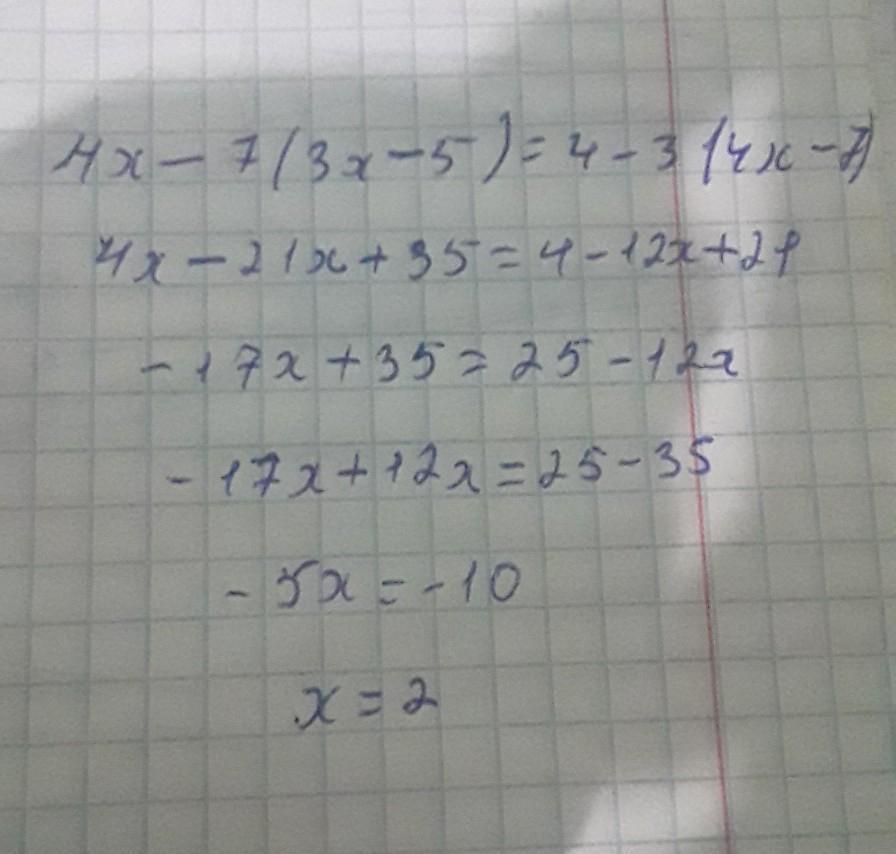 4x - 7(3x - 5) = 4 - 3(4x - 7)
4x - 21x + 35 = 4 - 12x + 21
-17x + 35 = 25 - 12x
-17x + 12x = 25 - 35
-5x = -10
x = 2